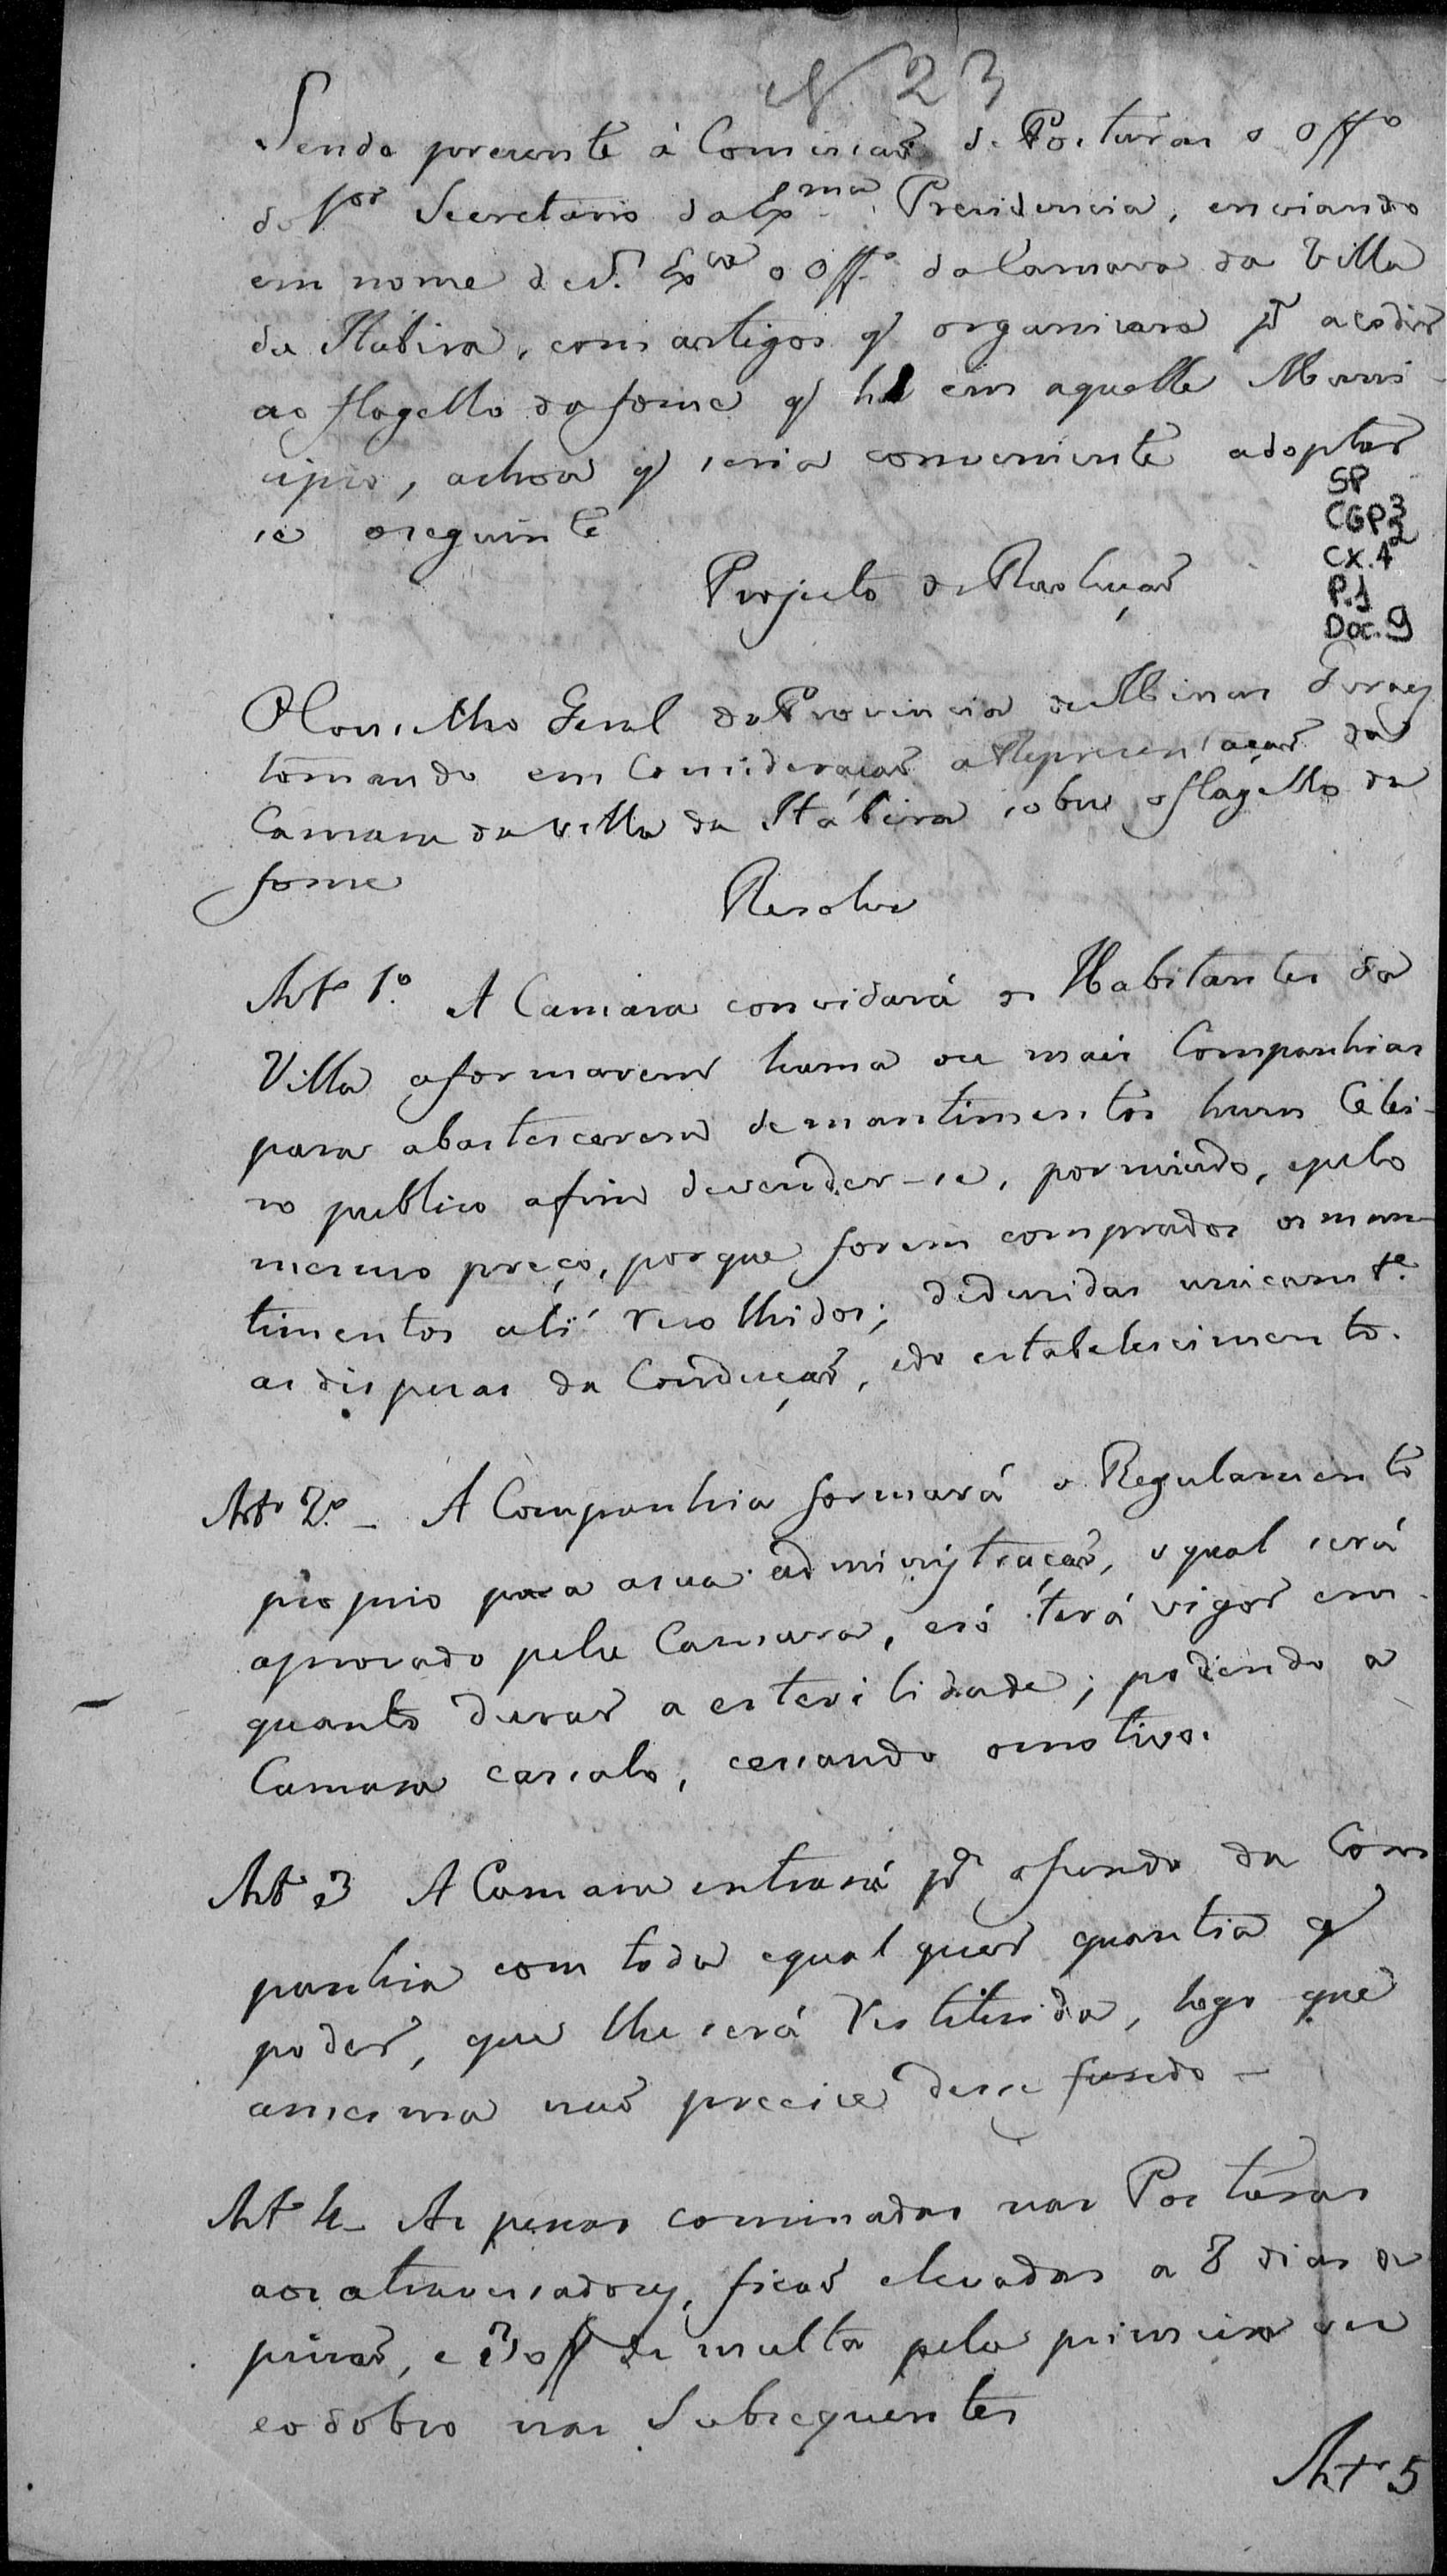 N 23
Sendo presente á Comissaõ de Posturas o Off.º
do Sor Secretario da Exma. Presidencia, enviando
em nome de S. Exca o Off.º da Camara da Villa
da Itabira, com artigos q̃ organisara pª acodir
ao flagello da fome q̃ há em aquelle Muni-
cipio, achou q̃ seria conveniente adoptar
se o seguinte
SP
CGP3
CX. 42
P.1
Doc. 9
Projecto de Resoluçaõ
O Conselho Geral da Provincia de Minas Geraes
tomando em Consideraçaõ a Representaçaõ da
Camara da Villa da Itábira sobre o flagello da
fome
Resolve
Artº 1º. A Camara convidará os Habitantes da
Villa a formarem huma ou mais Companhias
para abastecerem de mantimentos hum Celei-
ro publico afim de vender-se, por miudo, e pelo
mesmo preço, porque forem comprados os man-
timentos ali recolhidos; deduzidas unicamte.
as dispesas da Conduçaõ, e do estabelecimento.
Artº 2º. - A Companhia formará o Regulamento
proprio para a sua administraçaõ, o qual será
aprovado pela Camara, e só terá vigor em-
quanto durar a esterilidade; podendo a
Camara cassalo, cessando o motivo.
Artº 3 A Camara entrará pª o fundo da Com
panhia com toda e qualquer quantia q̃
poder, que lhe será restituida, logo que
a mesma naõ precise desse fundo -
Artº 4 - As penas cominadas nas Posturas
aos atravessadores, ficaõ elevadas a 8 dias de
prisaõ, e de multa pela primeira vez
e o dobro nas Subsequentes
Artº 5